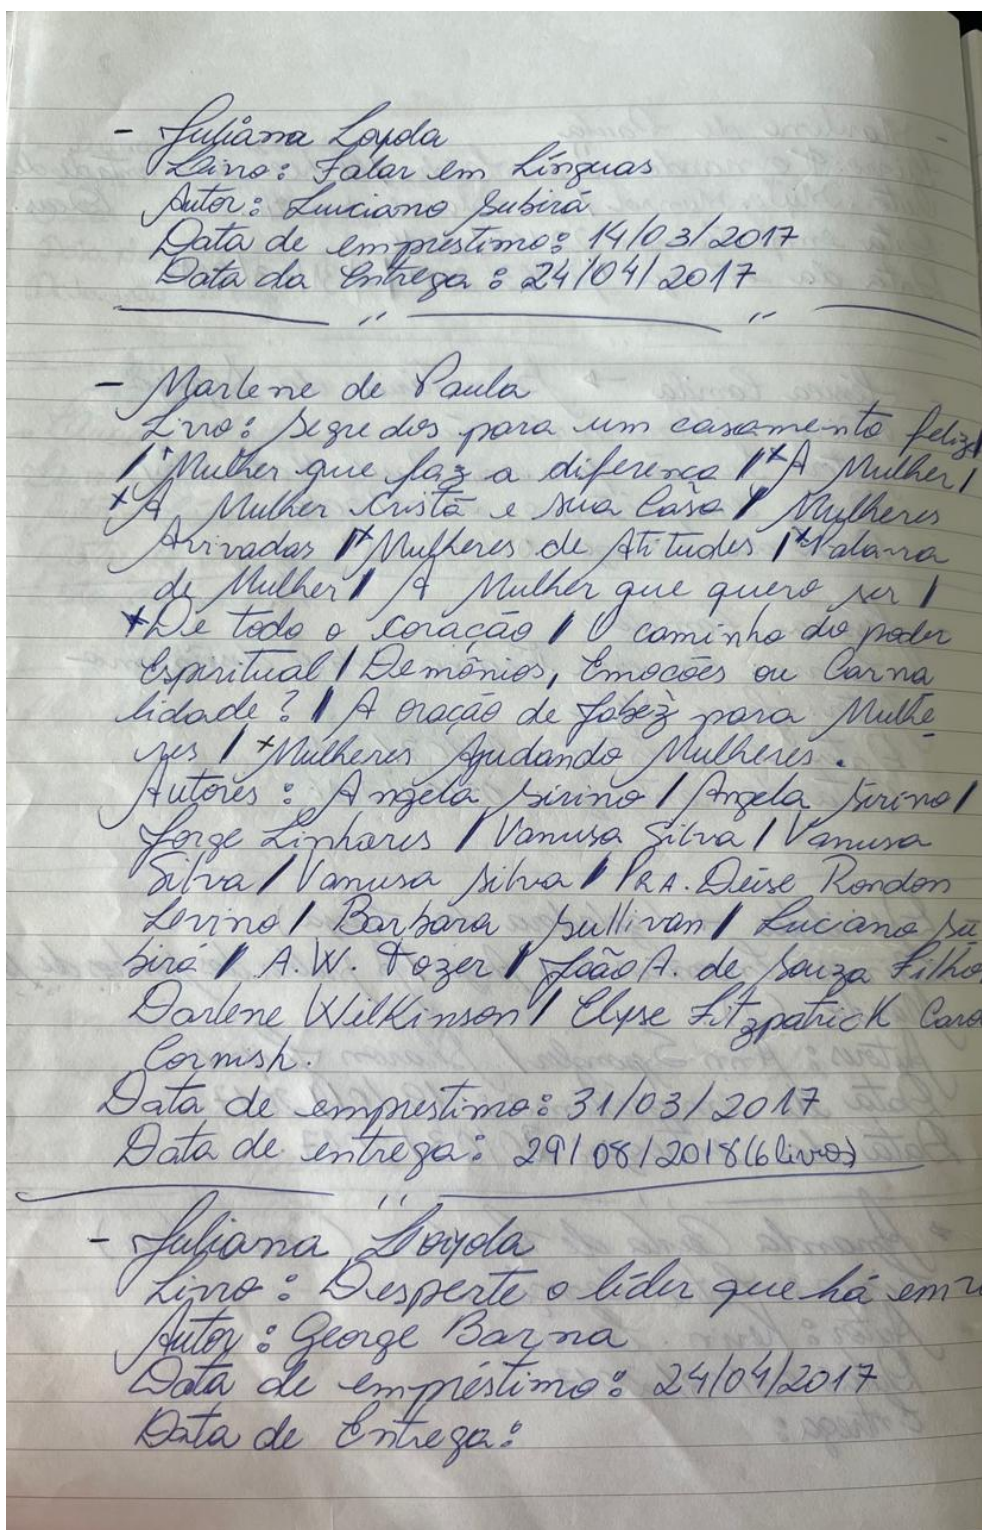 - Juliana Loyola
Livro: Falar em Línguas
Autor: Luciano Subirá
Data de empréstimo: 14/03/2017
Data da Entrega: 24/04/2017
- Marlene de Paula
Livro: Segredos para um casamento feliz/
/ + Mulher que faz a diferença / + A Mulher /
+ A Mulher Cristã e sua Casa / Mulheres
Avivadas / + Mulheres de Atitudes / + Palavra
de Mulher / A Mulher que quero ser /
+ De todo o coração / O caminho do poder
Espiritual / Demônios, Emoções ou Carna
lidade? / A oração de Jabez para Mulhe
res / + Mulheres Ajudando Mulheres.
Autores: Angela Sirino / Angela Sirino /
Jorge Linhares / Vanusa Silva / Vanusa
Silva / Vanusa Silva / PRA. Deise Rondon
Levino / Barbara Sullivan / Luciano Su
birá / A.W. Tozer / João A. de Souza Filho
Darlene Wilkinson / Elyse Fitzpatrick Caro
Cornish.
Data de emprestimo: 31/03/2017
Data de entrega: 29/08/2018 (6 livros)
- Juliana Loyola
Livro: Desperte o líder que há em
Autor: George Barna
Data de empréstimo: 24/04/2017
Data de Entrega: